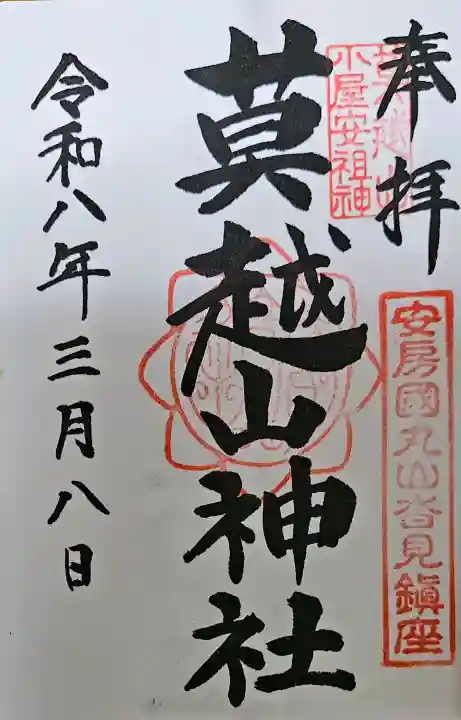 奉拝
莫越山
小屋安祖神
安房國丸山沓見鎮座
莫越山神社
令和八年三月八日